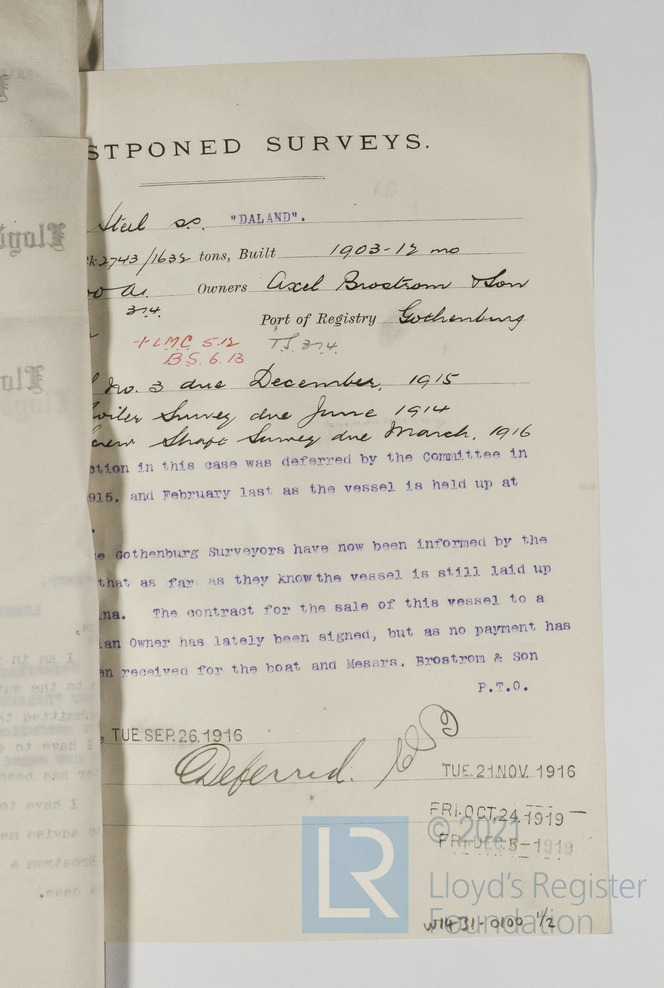 STPONED SURVEYS.
Steel ss. "DALAND".
2743/1632 tons, Built 1903-12 mo
Owners Axel Brostrom & Son
3.14.
Port of Registry Gothenburg
+LMC 5.12 T.S. 3.14.
B.S. 6.13
No. 3 due December, 1915
oiler Survey due June 1914
crew Shaft Survey due March, 1916
ction in this case was deferred by the Committee in
915. and February last as the vessel is held up at
e Gothenburg Surveyors have now been informed by the
that as far as they know the vessel is still laid up
na. The contract for the sale of this vessel to a
an Owner has lately been signed, but as no payment has
en received for the boat and Messrs. Brostrom & Son
P.T.O.
TUE. SEP. 26. 1916
Deferred.
TUE. 21 NOV. 1916
FRI. OCT. 24. 1919
FRI. DEC. 5-1919
© 2021
LR
Lloyd's Register
Foundation
W1431-0100 1/2